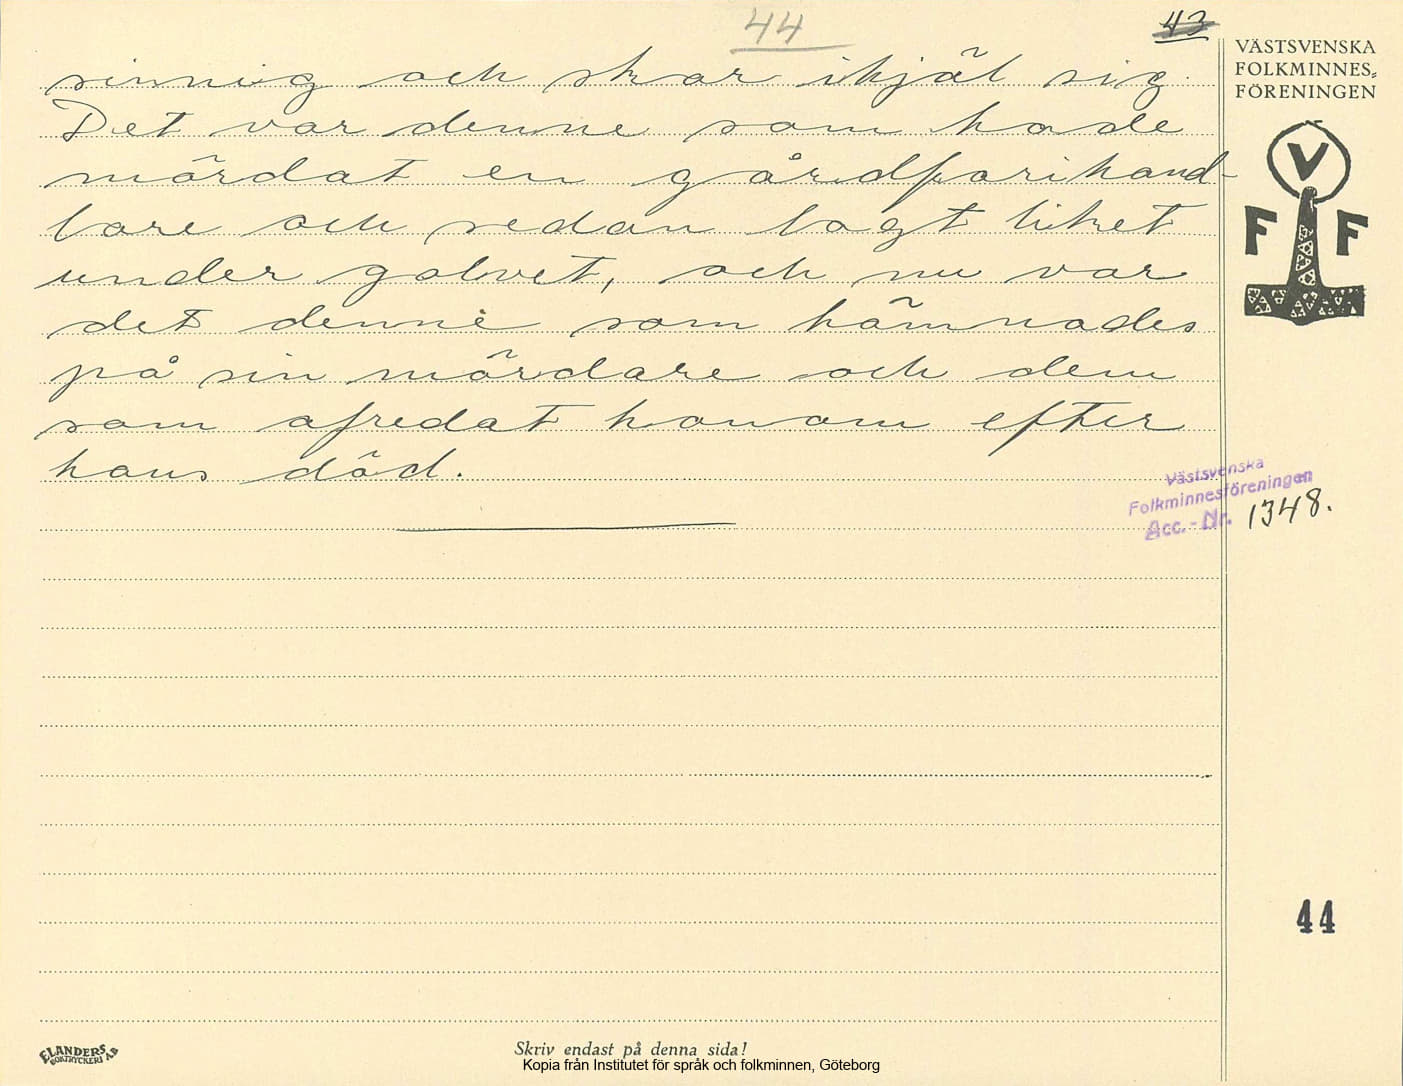 44
43
VÄSTSVENSKA
FOLKMINNES=
FÖRENINGEN
V
F F
sinnig och skar ihjäl sig.
Det var denne som hade
mördat en gårdfarihand-
lare och sedan lagt liket
under golvet, och nu var
det denne som hämnades
på sin mördare och dem
som ofredat honom efter
hans död.
Västsvenska
Folkminnesföreningen
Acc.-Nr. 1348.
44
ELANDERS
BOKTRYCKERI AB
Skriv endast på denna sida!
Kopia från Institutet för språk och folkminnen, Göteborg